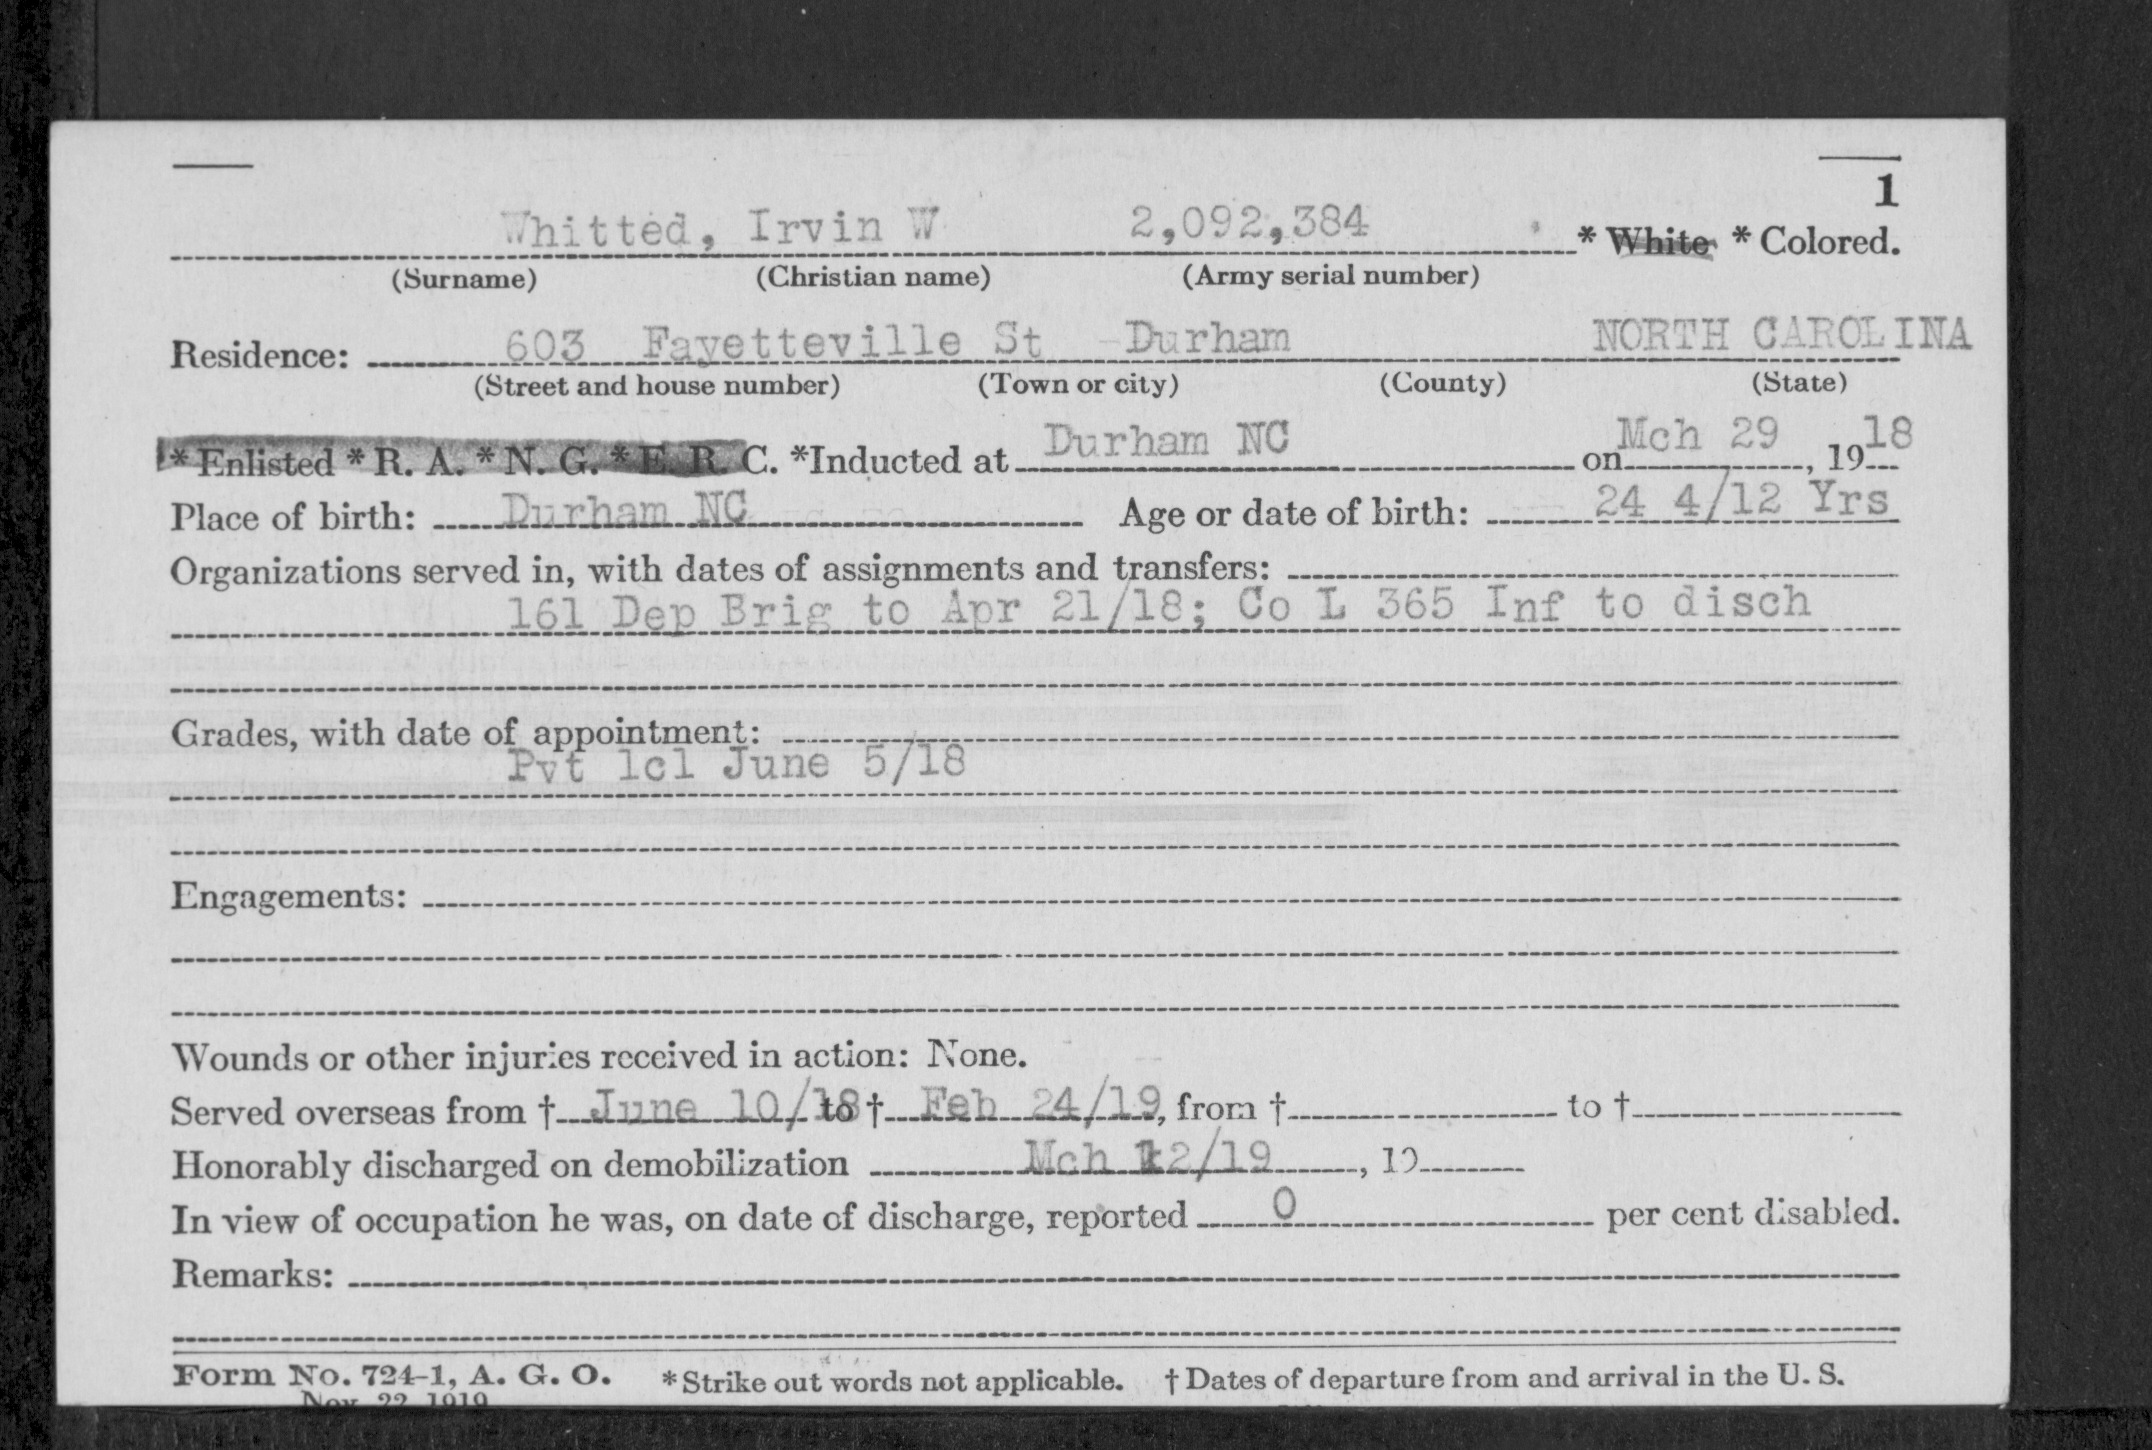 1
Whitted, Irvin W 2,092,384 * White * Colored.
(Surname) (Christian name) (Army serial number)
Residence: 603 Fayetteville St Durham NORTH CAROLINA
(Street and house number) (Town or city) (County) (State)
* Enlisted * R. A. * N. G. * E. R. C. *Inducted at Durham NC on Mch 29, 1918
Place of birth: Durham NC Age or date of birth: 24 4/12 Yrs
Organizations served in, with dates of assignments and transfers:
161 Dep Brig to Apr 21/18; Co L 365 Inf to disch
Grades, with date of appointment:
Pvt 1cl June 5/18
Engagements:
Wounds or other injuries received in action: None.
Served overseas from † June 10/18 to † Feb 24/19, from † to †
Honorably discharged on demobilization Mch 12/19, 19
In view of occupation he was, on date of discharge, reported 0 per cent disabled.
Remarks:
Form No. 724-1, A. G. O. * Strike out words not applicable. † Dates of departure from and arrival in the U. S.
Nov. 22, 1919